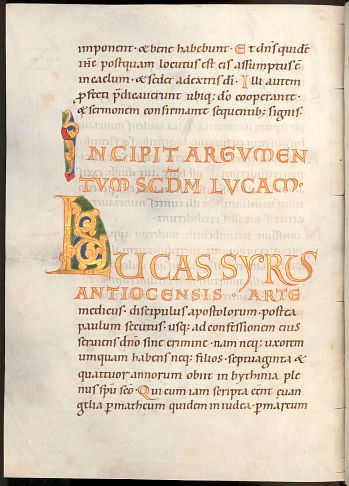 imponent · & bene habebunt · Et dn̄s quidē
ihc̄ postquam locutus est eis assumptus ē
in caelum · & sedet a dextris dī · Illi autem
p̄fecti p̄dicauerunt ubiq; dn̄o cooperante ·
& sermonem confirmante sequentib; signis ·
INCIPIT ARGUMEN
TUM SCDM LUCAM ·
LUCAS SYRUS
ANTIOCENSIS · ARTE
medicus · discipulus apostolorum · postea
paulum secutus · usq; ad confessionem eius
seruiens dn̄o sine crimine · nam neq; uxorem
umquam habens neq; filios · septuaginta &
quattuor annorum obiit in bythinia ple
nus spū scō · Qui cum iam scripta eēnt euan
gelia p matheum quidem in iudea · p marcum